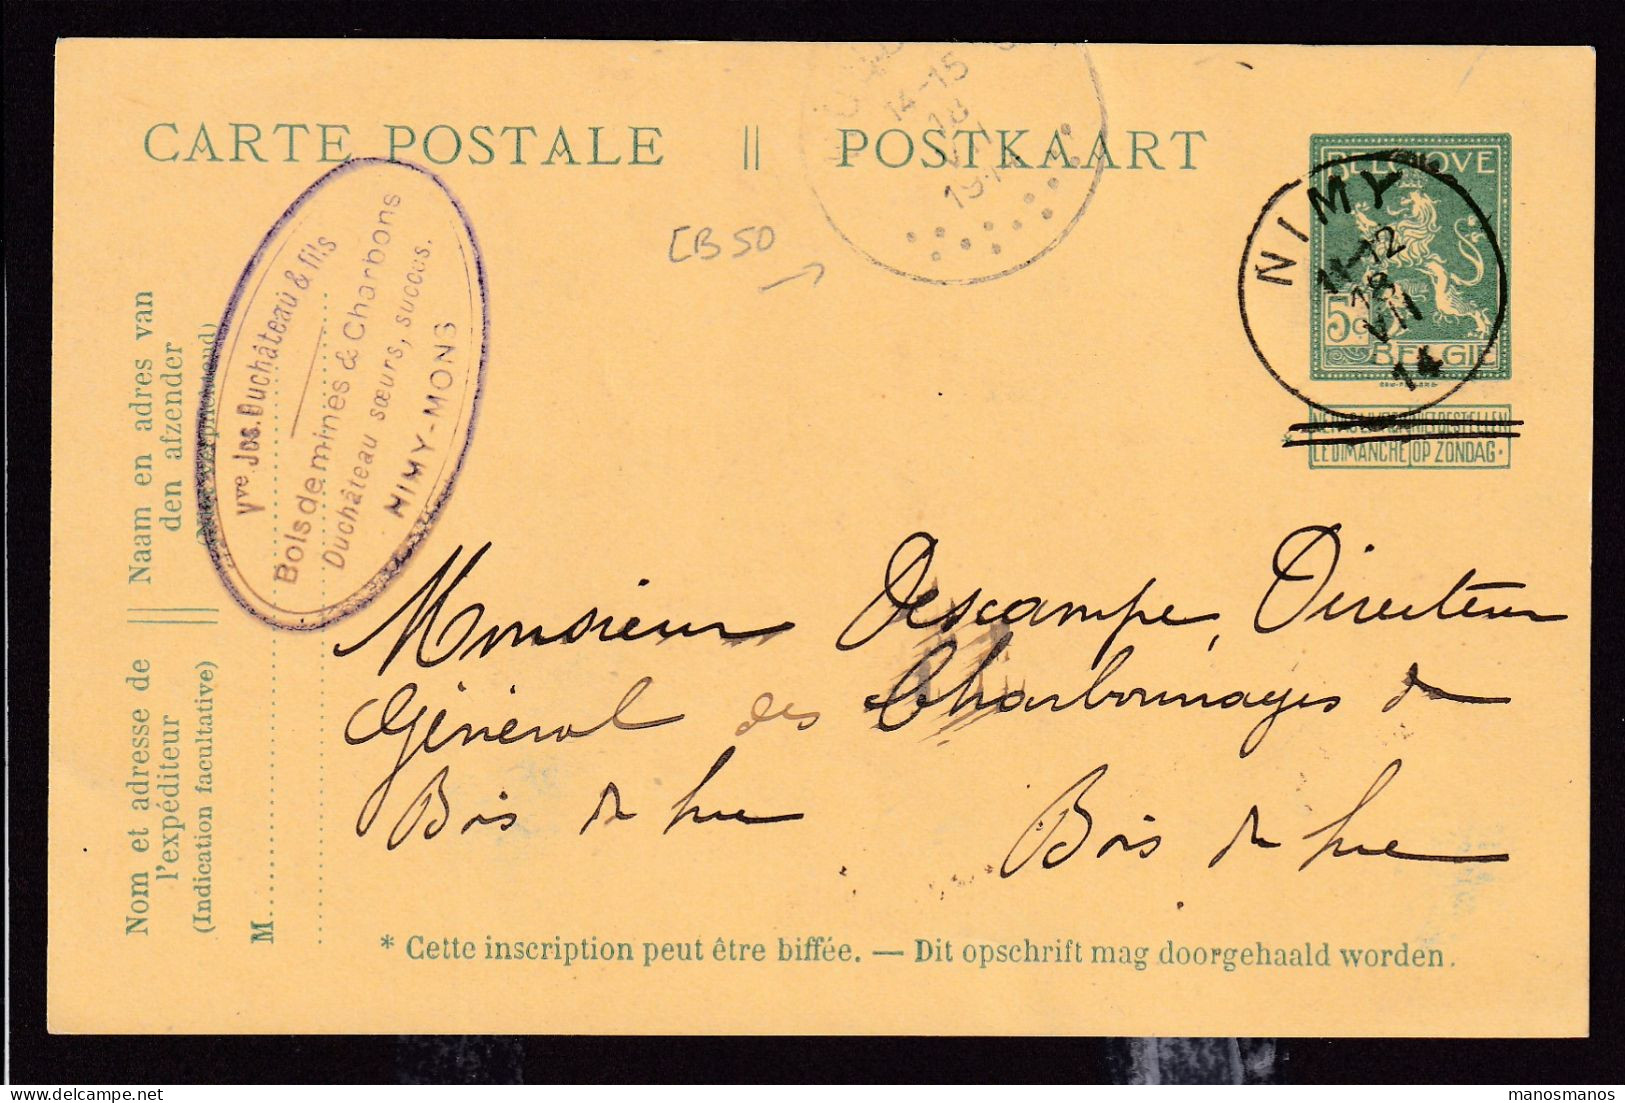 CARTE POSTALE || POSTKAART
14-15
18
VII
1914
[B50
BELGIQUE
5c
BELGIE
NIMY
11-12
18
VII
14
NIET BESTELLEN
LE DIMANCHE OP ZONDAG.
Vve Jos. Duchâteau & fils
Bois de mines & Charbons
Duchâteau sœurs, succes.
NIMY-MONS
Naam en adres van
den afzender
Nom et adresse de
l'expéditeur
(Indication facultative)
M
Monsieur Descampe, Directeur
Général des Charbonnages de
Bois du Luc Bois du Luc
* Cette inscription peut être biffée. — Dit opschrift mag doorgehaald worden.
manosmanos